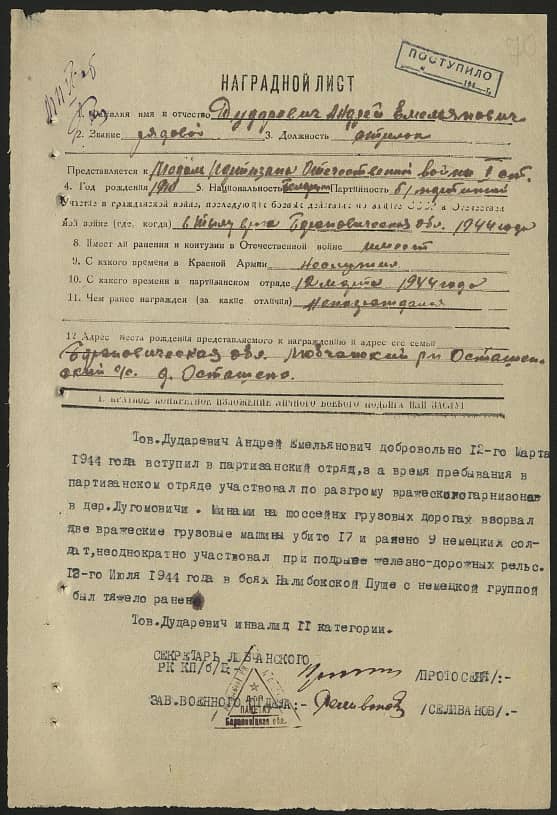 ПОСТУПИЛО
70
НАГРАДНОЙ ЛИСТ
1. Фамилия имя и отчество Дударевич Андрей Емельянович
2. Звание рядовой 3. Должность стрелок
Представляется к Медали Партизана Отечественной войны I ст.
4. Год рождения 1910 5. Национальность Белорус Партийность б/партийный
Участие в гражданской войне, последующих боевых действиях по защите СССР и Отечествен
ной войне (где, когда) в тылу врага Барановическая обл. 1944 года
8. Имеет ли ранения и контузии в Отечественной войне имеет
9. С какого времени в Красной Армии
10. С какого времени в партизанском отряде 12 марта 1944 года
11. Чем ранее награжден (за какие отличия) Ненаграждался
12 Адрес места рождения представляемого к награждению и адрес его семьи
Барановическая обл. Любчанский рн Осташен-
ский с/с. д. Осташено.
I. КРАТКОЕ КОНКРЕТНОЕ ИЗЛОЖЕНИЕ ЛИЧНОГО БОЕВОГО ПОДВИГА ИЛИ ЗАСЛУГ
Тов. Дударевич Андрей Емельянович добровольно 12-го Марта
1944 года вступил в партизанский отряд,з а время пребывания в
партизанском отряде участвовал по разгрому вражеского гарнизона
в дер. Лугомовичи . Минами на шоссейнх грузовых дорогах взорвал
две вражеские грузовые машины убито 17 и ранено 9 немецких сол-
дат,неоднократно участвовал при подрыве железно-дорожных рельс.
12-го Июля 1944 года в боях Налибокской Пуще с немецкой группой
был тяжело ранен
Тов. Дударевич инвалид II категории.
СЕКРЕТАРЬ ЛЮБЧАНСКОГО
РК КП/б/Б: /ПРОТОСЕНЯ/:-
ЗАВ.ВОЕННОГО ОТДЕЛА:- Селиванов /СЕЛИВАНОВ/.-
Барановіцкая обл.